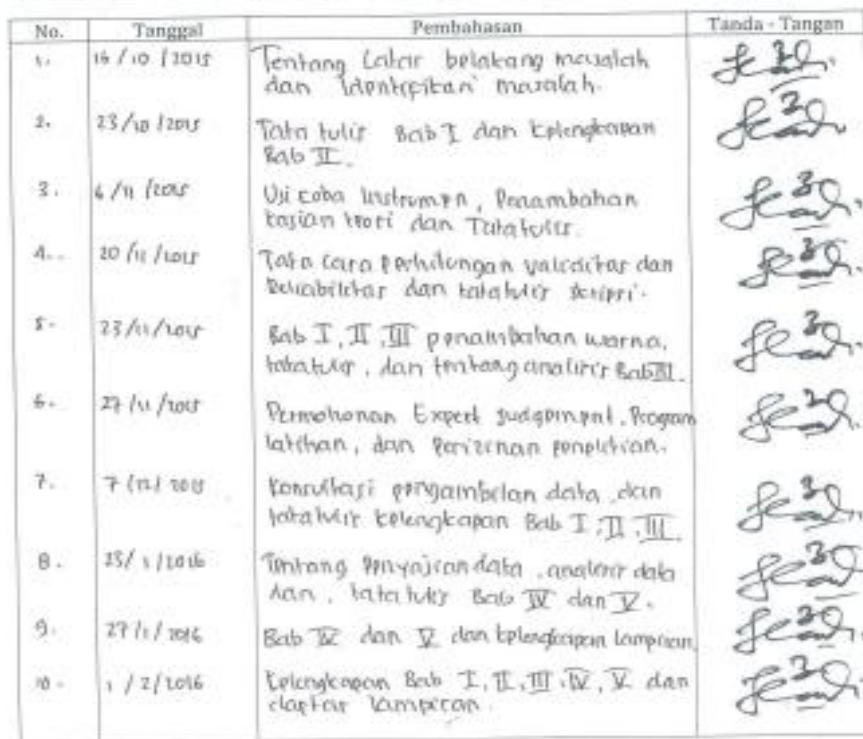 No. Tanggal Pembahasan Tanda - Tangan
1. 16 / 10 / 2015 Tentang Latar belakang masalah
dan Identifikasi masalah.
2. 23 / 10 / 2015 Tata tulis Bab I dan kelengkapan
Bab II.
3. 6 / 11 / 2015 Uji coba Instrumen, Penambahan
kajian teori dan Tatatulis.
4. 20 / 11 / 2015 Tata cara perhitungan validitas dan
Reliabilitas dan tatatulis skripsi.
5. 23 / 11 / 2015 Bab I, II, III penambahan warna,
tatatulis, dan tentang analisis Bab III.
6. 27 / 11 / 2015 Permohonan Expert Judgement, Program
latihan, dan Perizinan penelitian.
7. 7 / 12 / 2015 Konsultasi pengambilan data, dan
tatatulis kelengkapan Bab I, II, III.
8. / 1 / 2016 Tentang Penyajian data, analisis data
dan, tatatulis Bab IV dan V.
9. 27 / 1 / 2016 Bab IV dan V dan kelengkapan lampiran.
10. 1 / 2 / 2016 Kelengkapan Bab I, II, III, IV, V dan
daftar lampiran.